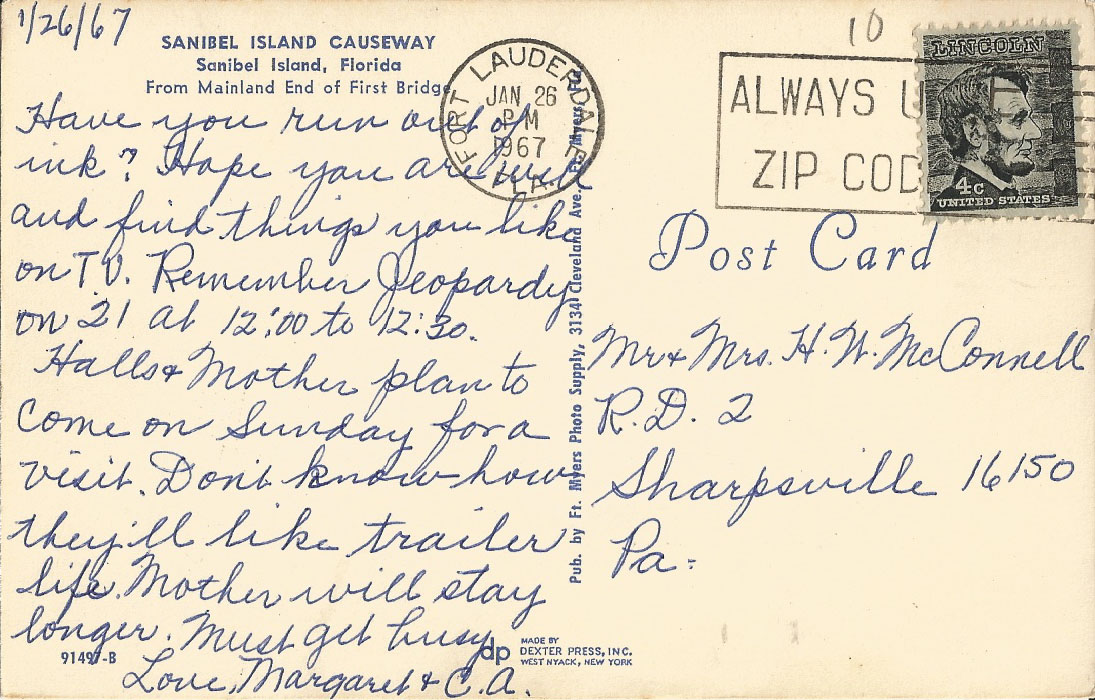 1/26/67
10
SANIBEL ISLAND CAUSEWAY
Sanibel Island, Florida
From Mainland End of First Bridge
Have you run out of
ink? Hope you are well
and find things you like
on T.V. Remember Jeopardy
on 21 at 12:00 to 12:30.
Halls & Mother plan to
come on Sunday for a
visit. Don't know how
they'll like trailer
life. Mother will stay
longer. Must get busy
Love, Margaret & C.A.
91497-B
FORT LAUDERDALE
JAN 26
PM
1967
FLA.
Pub. by Ft. Myers Photo Supply, 3134 Cleveland Ave., Ft. Myers, Fla.
dp MADE BY
DEXTER PRESS, INC.
WEST NYACK, NEW YORK
ALWAYS U
ZIP COD
LINCOLN
4c
UNITED STATES
Post Card
Mr & Mrs. H. W. McConnell
R.D. 2
Sharpsville 16150
Pa.